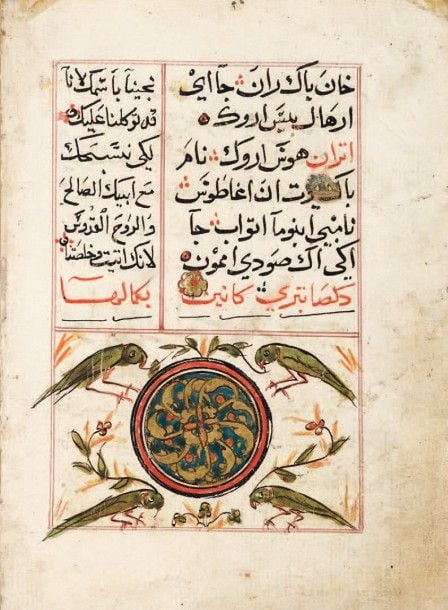 خان باك ران جا اي
ارهال بيس اروك
اتران هوس اروك نام
باك ان اغاطوس
نامبي ابنوما اثواب جا
اكي اك صودي امون
نجينا باسمك لانا
قد توكلنا عليك
لكي نسبحك
مع ابيك الصالح
والروح القدوس
لانك اتيت وخلصتنا
بكمالها